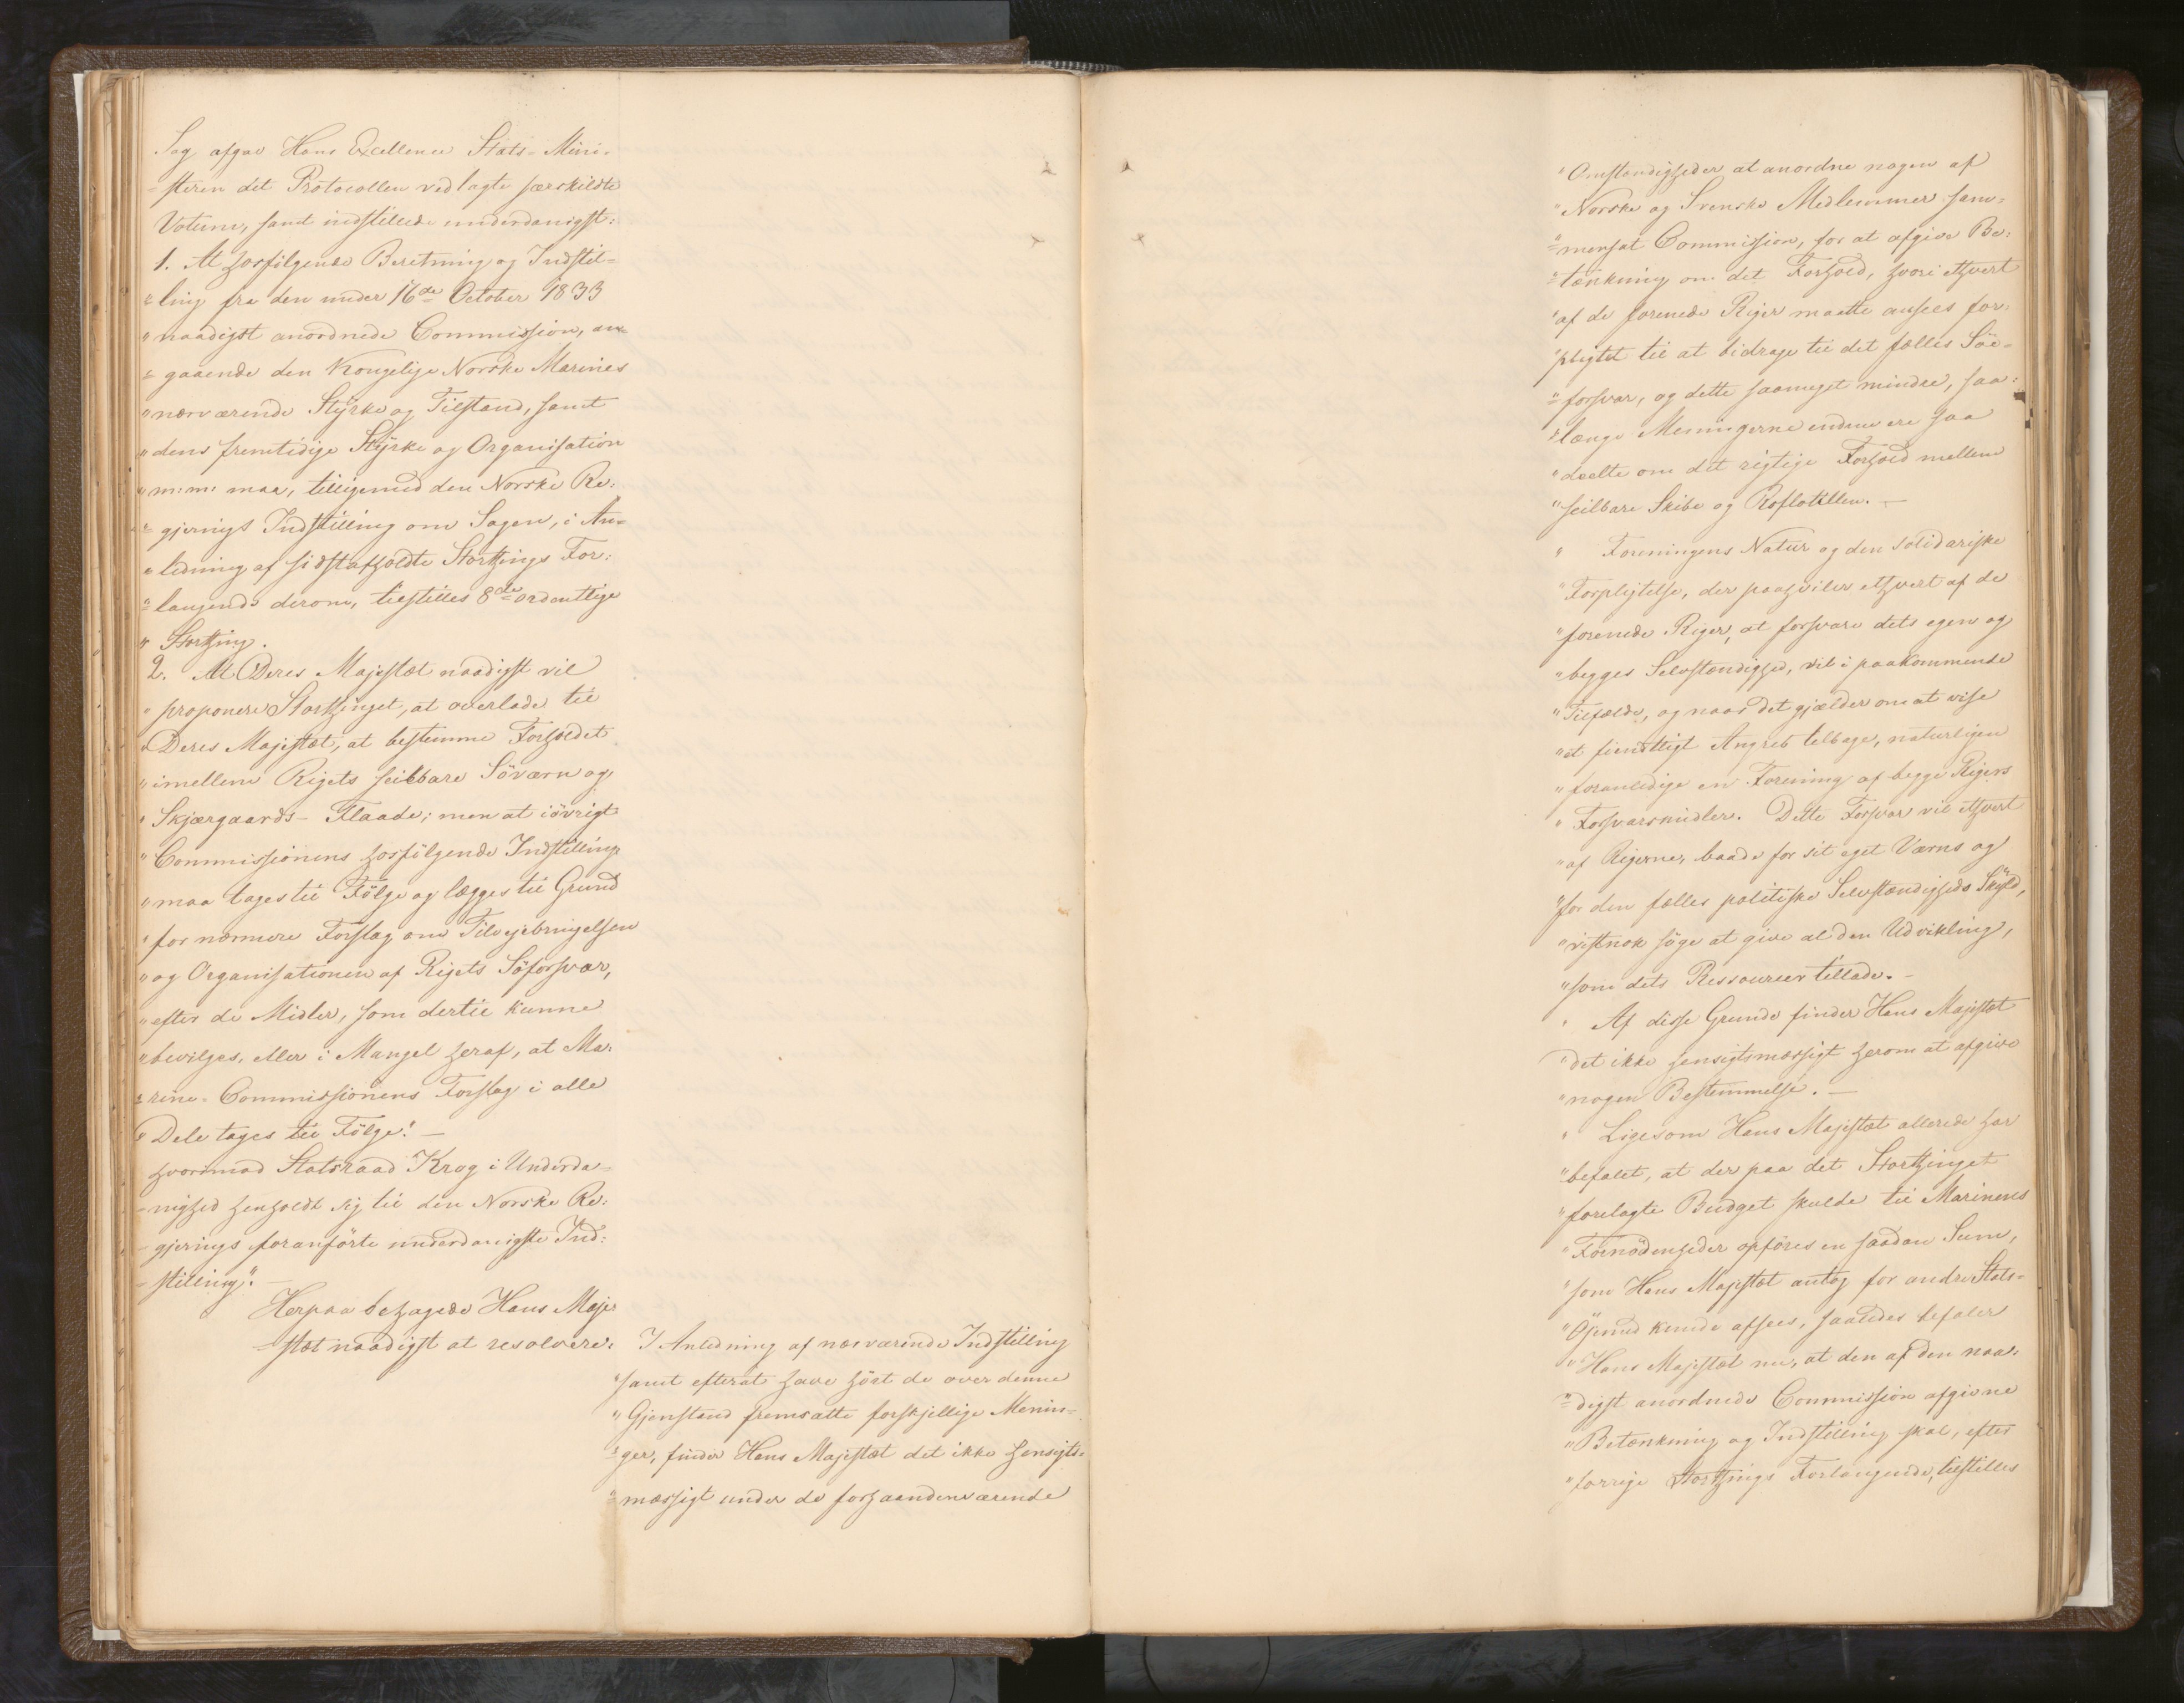 Sag afgav Hans Excellence Stats-Mini-
-steren det Protocollen vedlagte særskildte
Votum, samt indstillede underdanigst:
1. At hosfölgende Beretning og Indstil-
"ling fra den under 16de October 1833
"naadigst anordnede Commission, an-
"gaaende den Kongelige Norske Marines
"nærværende Styrke og Tilstand, samt
"dens fremtidige Styrke og Organisation
"m:m: maa, tilligemed den Norske Re-
"gjerings Indstilling om Sagen, i An-
"ledning af sidstafholdte Storthings For-
"langende derom, tilstilles 8de ordentlige
"Storthing.
2. At Deres Majestæt naadigst vil
"proponere Storthinget, at overlade til
"Deres Majestæt, at bestemme Forholdet
"imellem Rigets seilbare Söværn og
"Skjærgaards-Flaade; men at iövrigt
"Commissionens hosfölgende Indstilling
"maa tages til Fölge og lægges til Grund
"for nærmere Forslag om Tilvejebringelsen
"og Organisationen af Rigets Söforsvar,
"efter de Midler, som dertil kunne
"bevilges, eller i Mangel heraf, at Ma-
"rine-Commissionens Forslag i alle
"Dele tages til Fölge! —
hvorimod Statsraad Krog i Underda-
-nighed henholdt sig til den Norske Re-
-gjerings foranförte underdanigste Ind-
-stilling". —
Herpaa behagede Hans Maje-
-stæt naadigst at resolvere:
I Anledning af nærværende Indstilling
"samt efterat have hört de over denne
"Gjenstand fremsatte forskjellige Menin-
"ger, finder Hans Majestæt det ikke hensigts-
"mæssigt under de forhaandenværende
"Omstændigheder at anordne nogen af
"Norske og Svenske Medlemmer sam-
"mensat Commission, for at afgive Be-
"tænkning om det Forhold, hvori ethvert
"af de forenede Riger maatte ansees for-
"pligtet til at bidrage til det fælles Söe-
"forsvar, og dette saameget mindre, saa-
"længe Meningerne endnu ere saa
"deelte om det rigtige Forhold mellem
"seilbare Skibe og Roflotillen. —
" Foreningens Natur og den solidariske
"Forpligtelse, der paahviler ethvert af de
"forenede Riger, at forsvare dets egen og
"begges Selvstændighed, vil i paakommende
"Tilfælde, og naar det gjælder om at vise
"et fiendtligt Angreb tilbage, naturligen
"foranledige en Forening af begge Rigers
"Forsvarsmidler. Dette Forsvar vil ethvert
"af Rigerne, baade for sit eget Værns og
"for den fælles politiske Selvstændigheds Skyld,
"vistnok söge at give al den Udvikling,
"som dets Ressourcer tillade. —
" Af disse Grunde finder Hans Majestæt
"det ikke hensigtsmæssigt herom at afgive
"nogen Bestemmelse. —
" Ligesom Hans Majestæt allerede har
"befalet, at der paa det Storthinget
"forelagte Budget skulde til Marinens
"Fornödenheder opföres en saadan Sum,
"som Hans Majestæt antog for andre Stats-
"Öjemed kunde afsees, saaledes befaler
"Hans Majestæt nu, at den af den naa-
"digst anordnede Commission afgivne
"Betænkning og Indstilling skal, efter
"forrige Storthings Forlangende, tilstilles